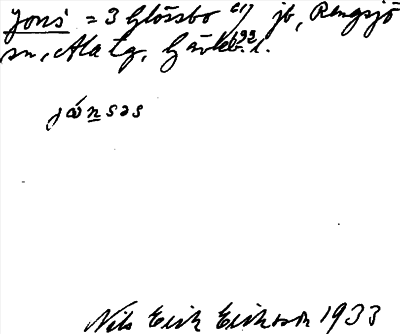 Jons = 3 Glössbo jb, Rengsjö
sn, Ala tg, Gävleb. l.
jónsəs
Nils Erik Eriksson 1933